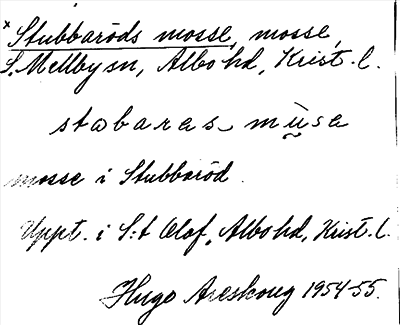 × Stubbaröds mosse, mosse,
S. Mellby sn, Albo hd, Krist. l.
stabaras mùsa
mosse i Stubbaröd.
Uppt. i S:t Olof, Albo hd, Krist. l.
Hugo Areskoug 1954-55.